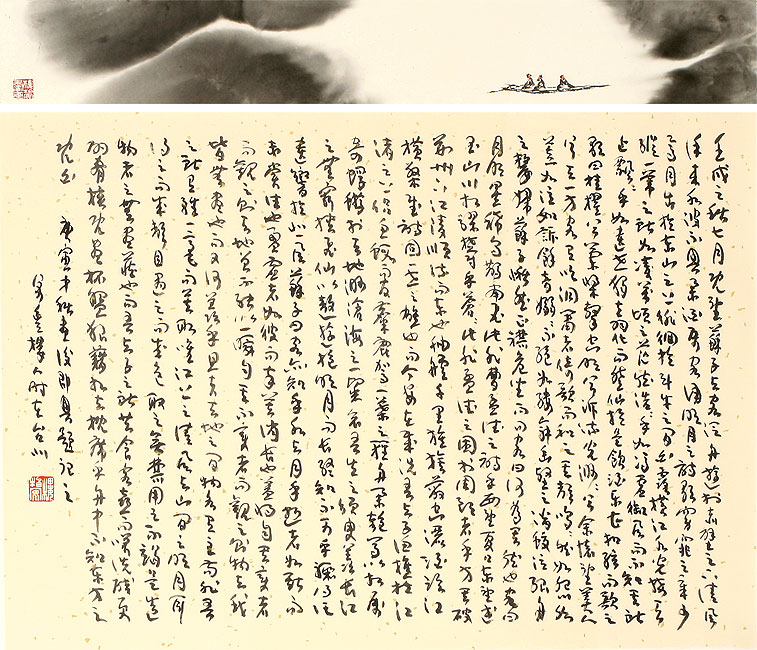 壬戌之秋七月既望蘇子與客泛舟遊於赤壁之下清風
徐來水波不興舉酒屬客誦明月之詩歌窈窕之章少
焉月出於東山之上徘徊於斗牛之間白露橫江水光接天
縱一葦之所如凌萬頃之茫然浩浩乎如馮虛御風而不知其所
止飄飄乎如遺世獨立羽化而登仙於是飲酒樂甚扣舷而歌之
歌曰桂櫂兮蘭槳擊空明兮泝流光渺渺兮余懷望美人
兮天一方客有吹洞簫者倚歌而和之其聲嗚嗚然如怨如
慕如泣如訴餘音嫋嫋不絕如縷舞幽壑之潛蛟泣孤舟
之嫠婦蘇子愀然正襟危坐而問客曰何為其然也客曰
月明星稀烏鵲南飛此非曹孟德之詩乎西望夏口東望武
昌山川相繆鬱乎蒼蒼此非孟德之困於周郎者乎方其破
荊州下江陵順流而東也舳艫千里旌旗蔽空釃酒臨江
橫槊賦詩固一世之雄也而今安在哉況吾與子漁樵於江
渚之上侶魚蝦而友麋鹿駕一葉之扁舟舉匏樽以相屬
寄蜉蝣於天地渺滄海之一粟哀吾生之須臾羨長江
之無窮挾飛仙以遨遊抱明月而長終知不可乎驟得託
遺響於悲風蘇子曰客亦知夫水與月乎逝者如斯而
未嘗往也盈虛者如彼而卒莫消長也蓋將自其變者
而觀之則天地曾不能以一瞬自其不變者而觀之則物與我
皆無盡也而又何羨乎且夫天地之間物各有主苟非吾
之所有雖一毫而莫取惟江上之清風與山間之明月耳
得之而為聲目遇之而成色取之無禁用之不竭是造
物者之無盡藏也而吾與子之所共食客喜而笑洗盞更
酌肴核既盡杯盤狼藉相與枕藉乎舟中不知東方之
既白 庚寅中秋畫後即興題記之
人時在台州